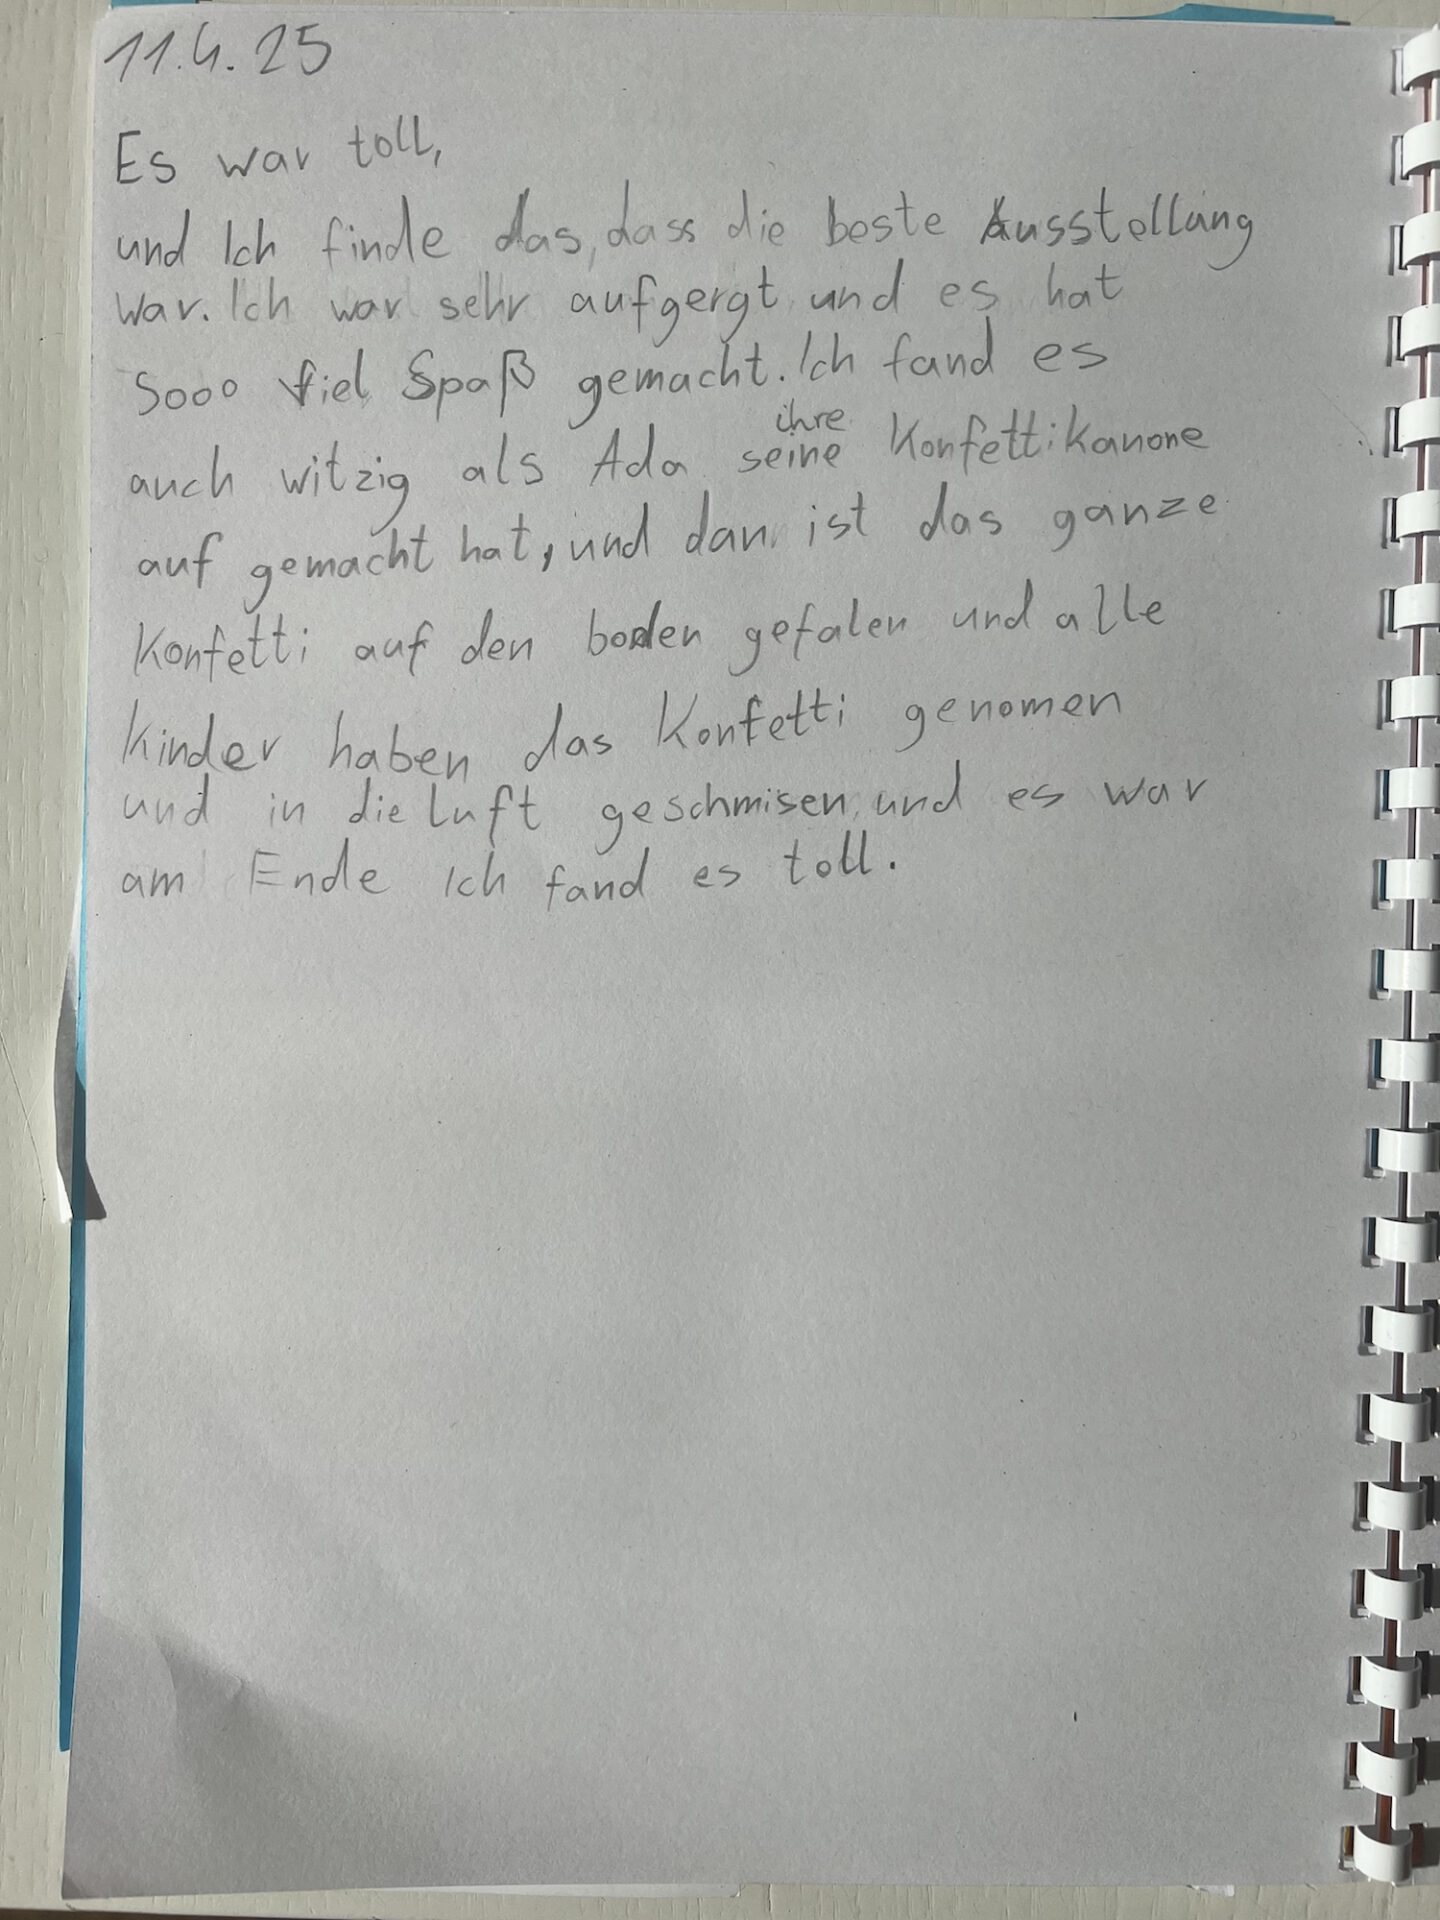 11.4.25
Es war toll,
und Ich finde das, dass die beste Ausstellung
war. Ich war sehr aufgergt und es hat
Sooo viel Spaß gemacht. Ich fand es
ihre
auch witzig als Ada seine Konfettikanone
auf gemacht hat, und dan ist das ganze
Konfetti auf den boden gefalen und alle
Kinder haben das Konfetti genomen
und in die Luft geschmisen, und es war
am Ende Ich fand es toll.